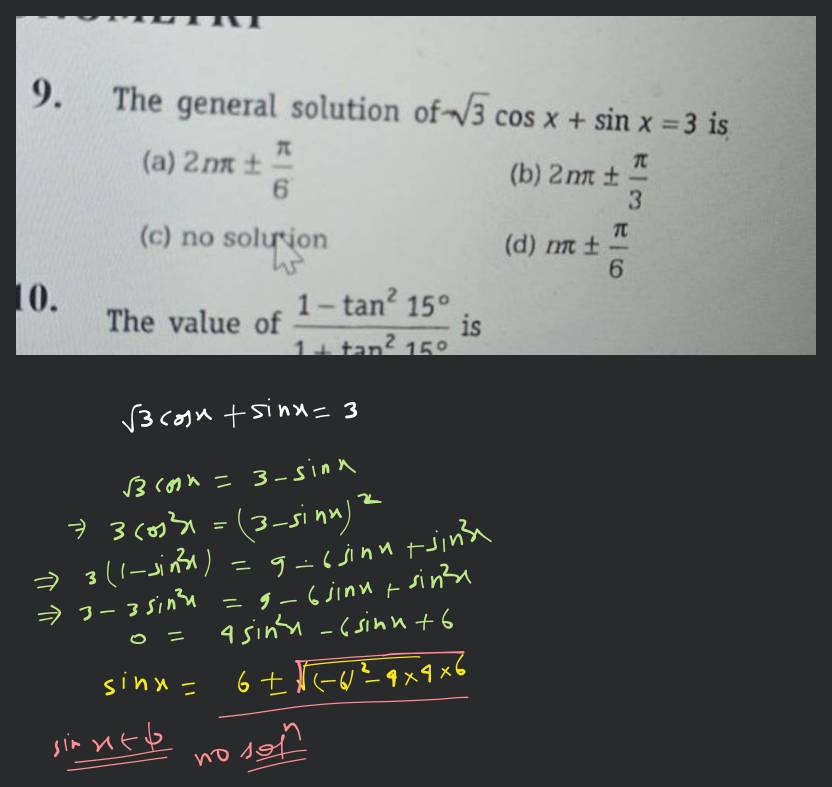 9. The general solution of √3 cos x + sin x = 3 is
(a) 2nπ ± π/6
(b) 2nπ ± π/3
(c) no solution
(d) nπ ± π/6
10. The value of (1 – tan² 15°)/(1 + tan² 15°) is
√3 cosx + sinx = 3
√3 cosx = 3 - sinx
⇒ 3 cos²x = (3 - sinx)²
⇒ 3(1 - sin²x) = 9 - 6 sinx + sin²x
⇒ 3 - 3 sin²x = 9 - 6 sinx + sin²x
0 = 4 sin²x - 6 sinx + 6
sinx = 6 ± √((-6)² - 4×4×6)
no solⁿ